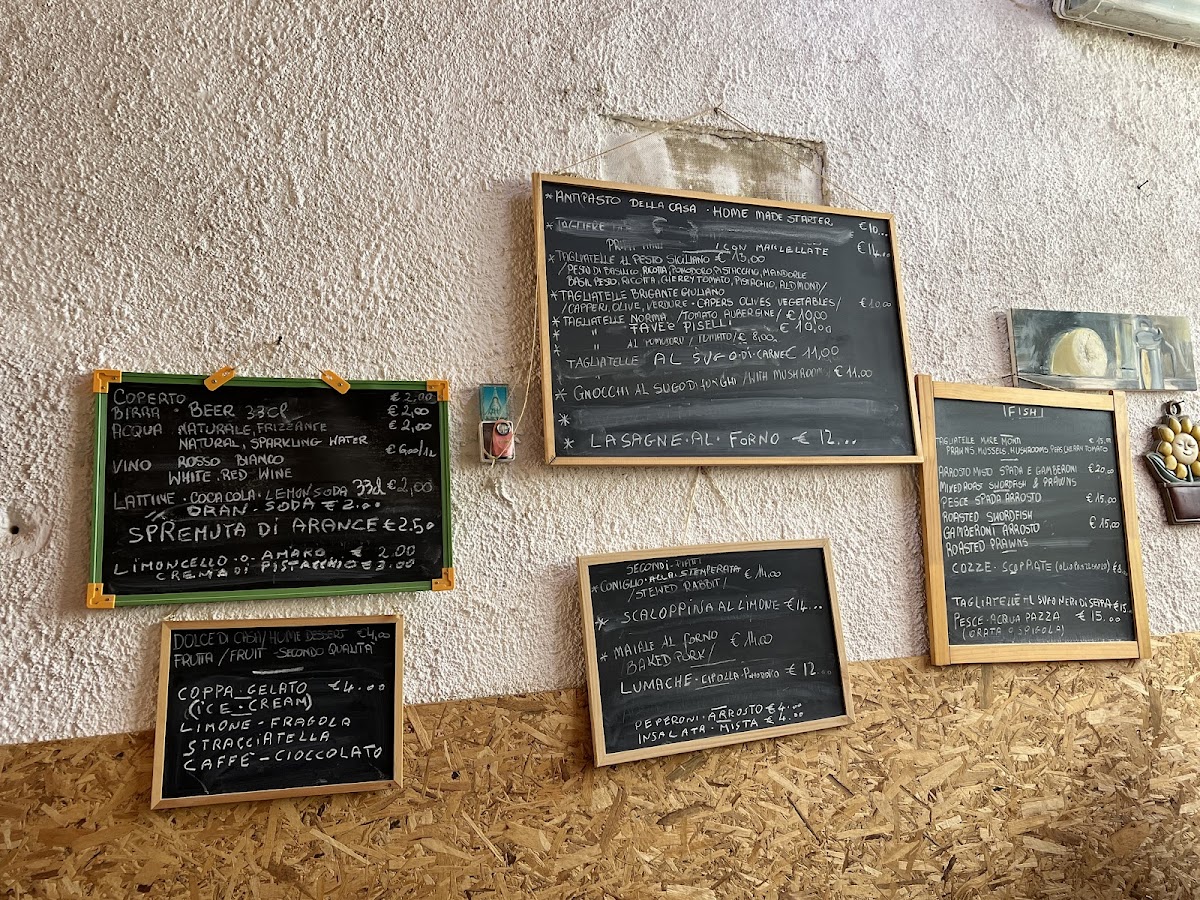 COPERTO € 2,00
BIRRA · BEER 33Cl € 2,00
ACQUA NATURALE, FRIZZANTE € 2,00
NATURAL, SPARKLING WATER
VINO ROSSO BIANCO
WHITE, RED WINE
LATTINE · COCA COLA · LEMONSODA 33cl € 2,00
ORAN · SODA € 2.00
SPREMUTA DI ARANCE € 2.50
LIMONCELLO · O · AMARO € 2.00
CREMA DI PISTACCHIO € 3.00
DOLCE DI CASA / HOME DESSERT € 4,00
FRUTTA / FRUIT - SECONDO QUALITA'
COPPA GELATO € 4.00
(ICE · CREAM)
LIMONE - FRAGOLA
STRACCIATELLA
CAFFE' - CIOCCOLATO
* ANTIPASTO DELLA CASA · HOME MADE STARTER € 10...
* TAGLIERE
CON MARMELLATE € 14...
* TAGLIATELLE AL PESTO SICILIANO € 13,00
/ PESTO DI BASILICO, RICOTTA, POMODORO, PISTACCHIO, MANDORLE
BASIL PESTO, RICOTTA, CHERRY TOMATO, PISTACHIO, ALDMOND /
* TAGLIATELLE BRIGANTE GIULIANO
/ CAPPERI, OLIVE, VERDURE · CAPERS OLIVES VEGETABLES / € 10.00
* TAGLIATELLE NORMA / TOMATO AUBERGINE / € 10,00
* " FAVE e PISELLI € 10,00
* " AL POMODORO / TOMATO / € 8,00
TAGLIATELLE AL SUGO · DI · CARNE € 11,00
* GNOCCHI AL SUGO DI FUNGHI / WITH MUSHROOM € 11.00
*
* LASAGNE · AL · FORNO € 12...
SECONDI · PIATTI
* CONIGLIO · ALLA STEMPERATA € 14,00
/ STEWED RABBIT /
* SCALOPPINA AL LIMONE € 14...
* MAIALE AL FORNO € 14.00
BAKED PORK /
LUMACHE · CIPOLLA · POMODORO € 12...
PEPERONI · ARROSTO € 4.00
INSALATA · MISTA € 4.00
FISH
TAGLIATELLE MARE MONTI € 15,00
PRAWNS, MUSSELS, MUSHROOMS, PEAS CHERRY TOMATO
ARROSTO MISTO SPADA E GAMBERONI € 20,00
MIXED ROAST SWORDFISH & PRAWNS
PESCE SPADA ARROSTO € 15,00
ROASTED SWORDFISH
GAMBERONI ARROSTO € 15,00
ROASTED PRAWNS
COZZE · SCOPPIATE
TAGLIATELLE · L SUGO NERI DI SEPPIA € 15...
PESCE · ACQUA PAZZA € 15.00
(ORATA O SPIGOLA)